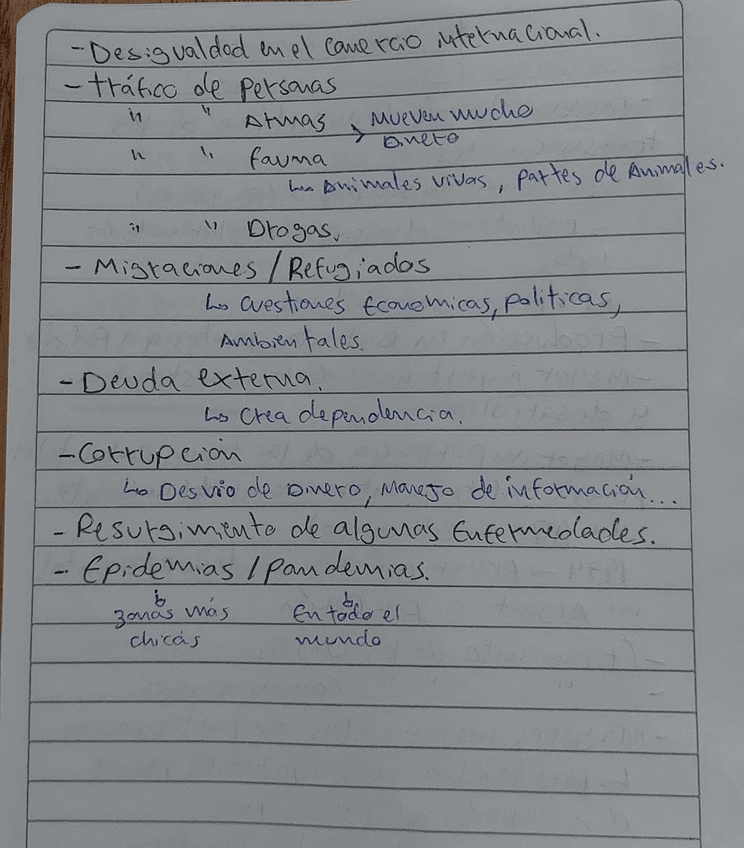 - Desigualdad en el comercio internacional.
- tráfico de personas
" " Armas > Mueven mucho
Dinero
" " fauna
↳ Animales vivos, partes de Animales.
" " Drogas.
- Migraciones / Refugiados
↳ cuestiones Económicas, políticas,
Ambientales.
- Deuda externa.
↳ Crea dependencia.
- Corrupción
↳ Desvío de Dinero, Manejo de información...
- Resurgimiento de algunas Enfermedades.
- Epidemias / pandemias.
↳ zonas más ↳ En todo el
chicas mundo